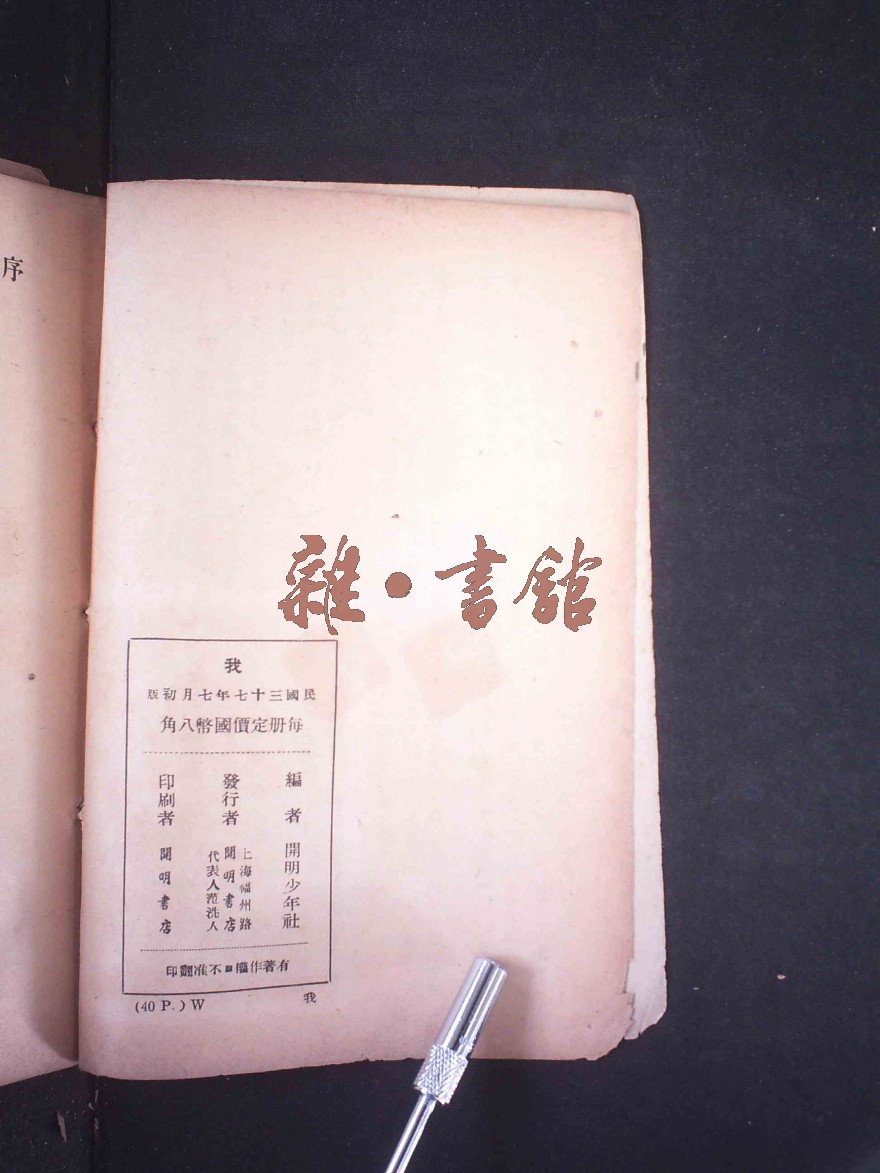 序
雜•書館
我
民國三十七年七月初版
每册定價國幣八角
編者 開明少年社
發行者 上海福州路
開明書店
代表人范洗人
印刷者 開明書店
有著作權■不准翻印
(40 P.) W
我